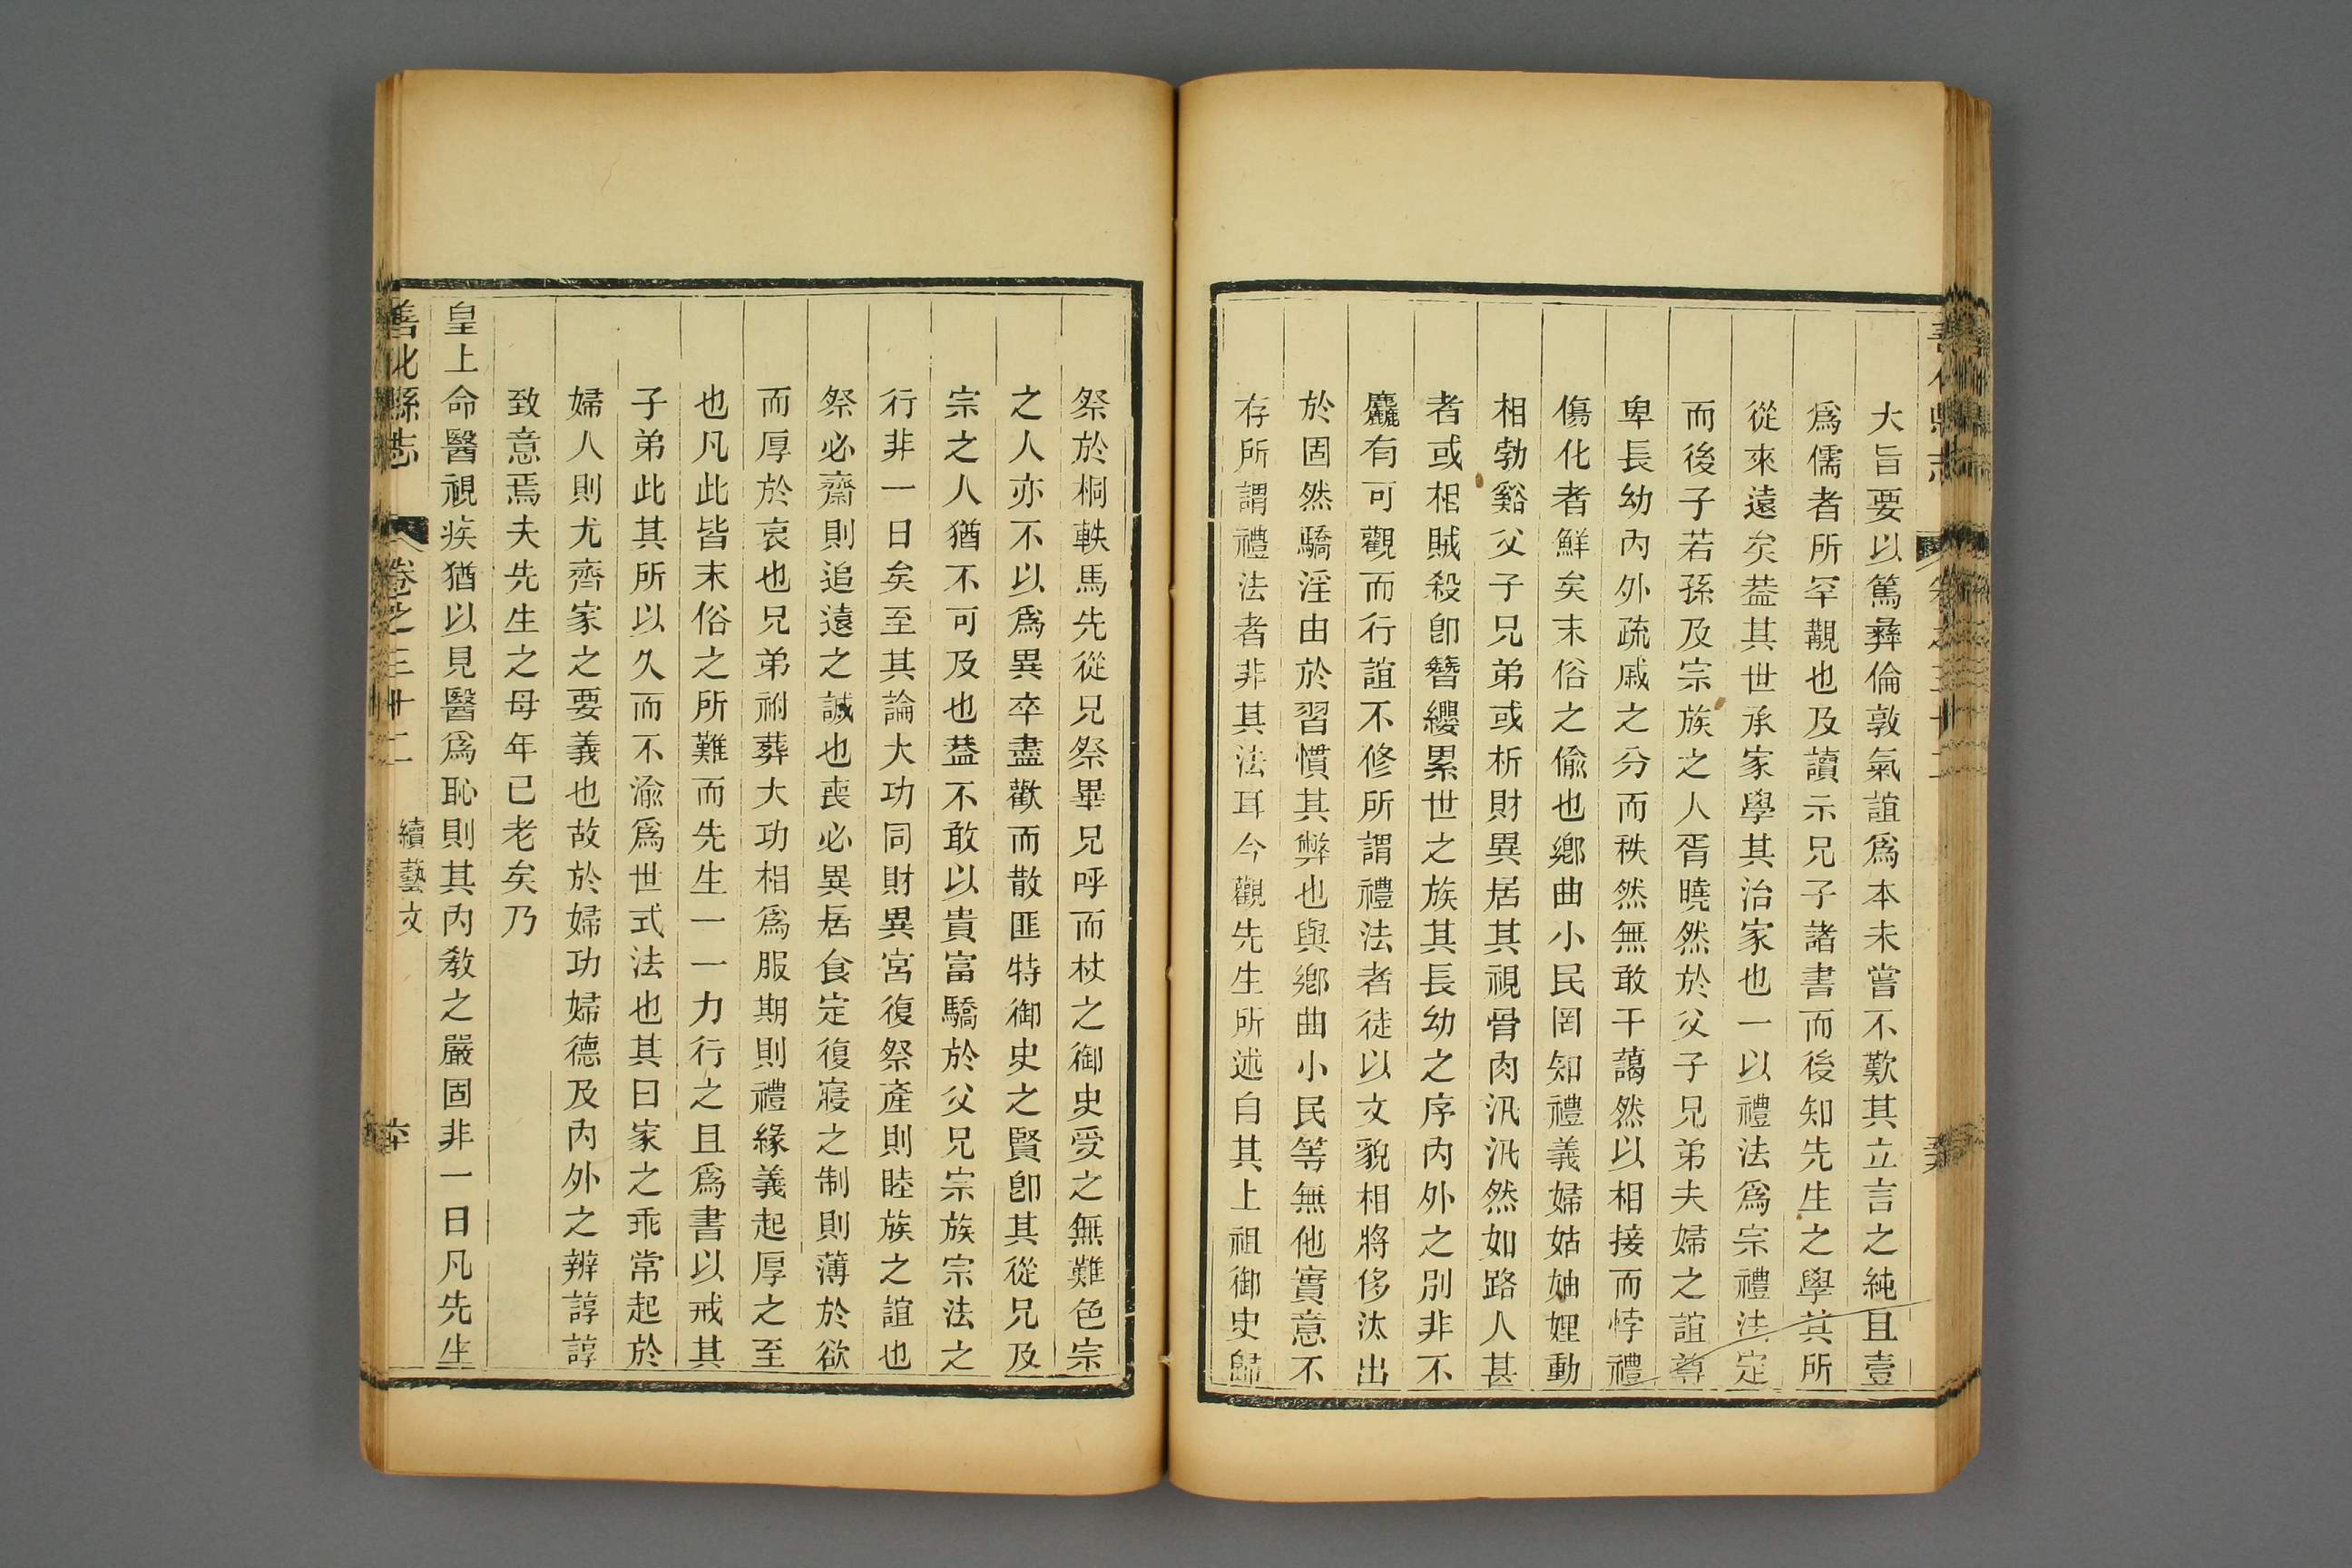 大旨要以篤彝倫敦氣誼爲本未嘗不歎其立言之純且壹
爲儒者所罕覯也及讀示兄子諸書而後知先生之學其所
從來遠矣葢其世承家學其治家也一以禮法爲宗禮法定
而後子若孫及宗族之人胥曉然於父子兄弟夫婦之誼尊
卑長幼內外疏戚之分而秩然無敢干藹然以相接而悖禮
傷化者鮮矣末俗之偷也鄉曲小民罔知禮義婦姑妯娌動
相勃谿父子兄弟或析財異居其視骨肉汎汎然如路人甚
者或相賊殺卽簪纓累世之族其長幼之序內外之別非不
麤有可觀而行誼不修所謂禮法者徒以文貌相將侈汰出
於固然驕淫由於習慣其弊也與鄉曲小民等無他實意不
存所謂禮法者非其法耳今觀先生所述自其上祖御史歸
祭於桐軼馬先從兄祭畢兄呼而杖之御史受之無難色宗
之人亦不以爲異卒盡歡而散匪特御史之賢卽其從兄及
宗之人猶不可及也葢不敢以貴富驕於父兄宗族宗法之
行非一日矣至其論大功同財異宮復祭產則睦族之誼也
祭必齋則追遠之誠也喪必異居食定復寢之制則薄於欲
而厚於哀也兄弟祔葬大功相爲服期則禮緣義起厚之至
也凡此皆末俗之所難而先生一一力行之且爲書以戒其
子弟此其所以久而不渝爲世式法也其曰家之乖常起於
婦人則尤齊家之要義也故於婦功婦德及內外之辨諄諄
致意焉夫先生之母年已老矣乃
皇上命醫視疾猶以見醫爲恥則其內教之嚴固非一日凡先生
善化縣志 卷之三十二 續藝文